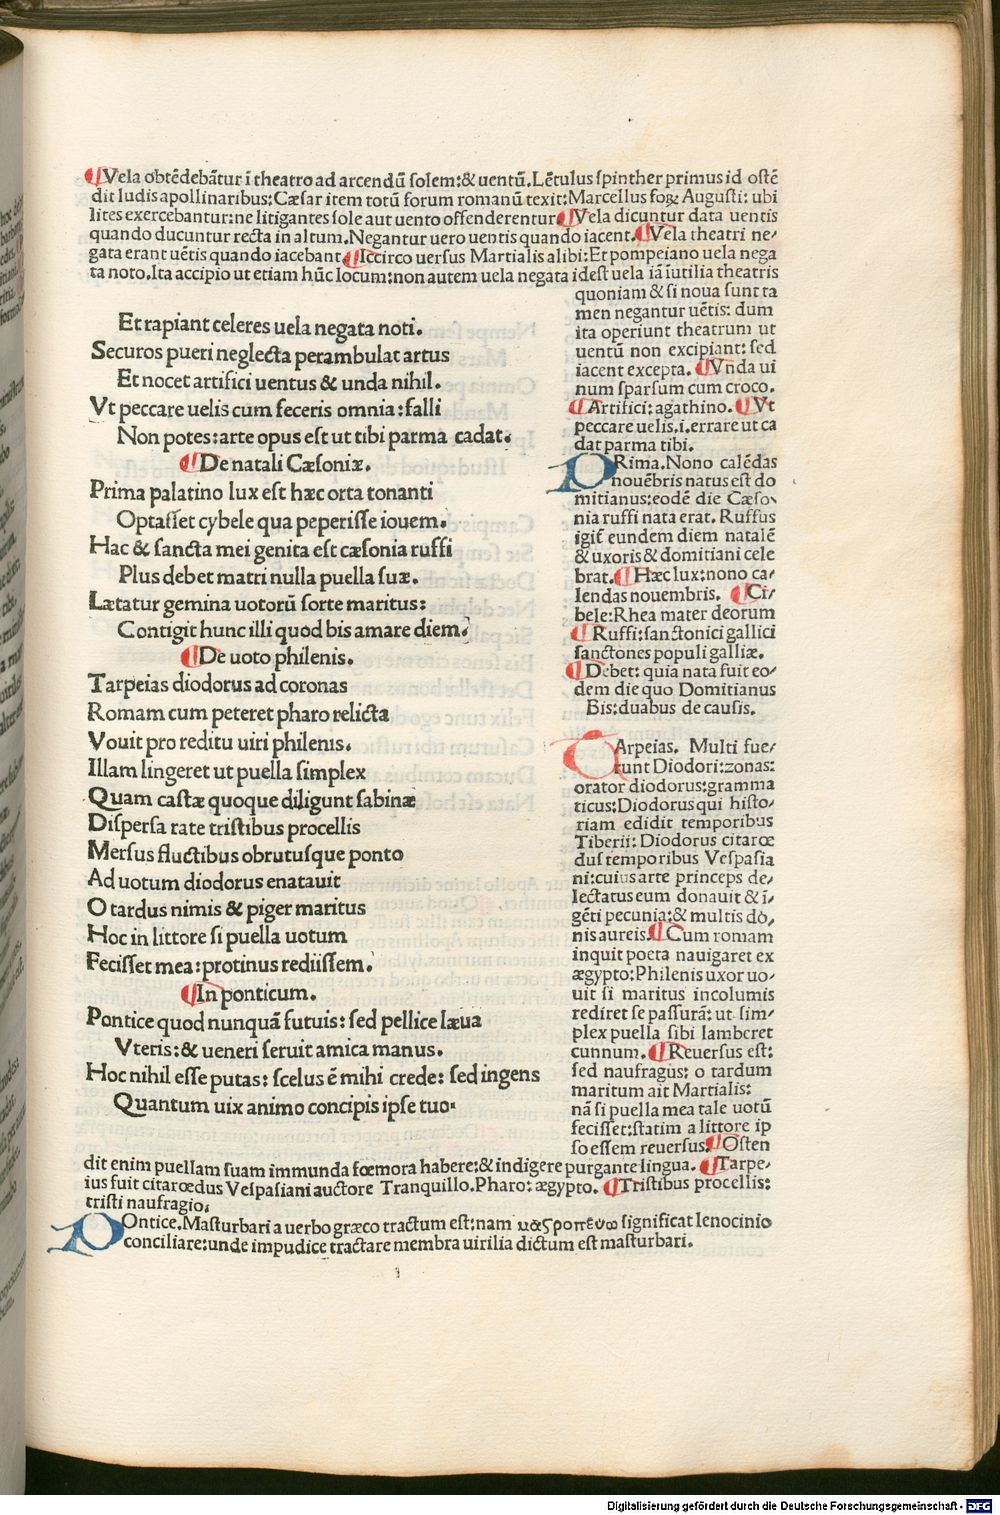 ¶Vela obtēdebātur ī theatro ad arcendū ſolem:&uentū.Lētulus ſpinther primus id oſtē
dit ludis apollinaribus:Cæſar item totū forum romanū texit:Marcellus foꝝ Auguſti: ubi
lites exercebantur:ne litigantes ſole aut uento offenderentur.¶Vela dicuntur data uentis
quando ducuntur recta in altum.Negantur uero uentis quando iacent.¶Vela theatri ne/
gata erant uētis quando iacebant.¶Iccirco uerſus Martialis alibi:Et pompeiano uela nega
ta noto.Ita accipio ut etiam hūc locum:non autem uela negata ideſt uela iā iutilia theatris
Et rapiant celeres uela negata noti.
Securos pueri neglecta perambulat artus
Et nocet artifici uentus & unda nihil.
Vt peccare uelis cum feceris omnia:falli
Non potes:arte opus eſt ut tibi parma cadat.
¶De natali Cæſoniæ.
Prima palatino lux eſt hæc orta tonanti
Optaſſet cybele qua peperiſſe iouem.
Hac & ſancta mei genita eſt cæſonia ruffi
Plus debet matri nulla puella ſuæ.
Lætatur gemina uotorū ſorte maritus:
Contigit hunc illi quod bis amare diem.
¶De uoto philenis.
Tarpeias diodorus ad coronas
Romam cum peteret pharo relicta
Vouit pro reditu uiri philenis.
Illam lingeret ut puella ſimplex
Quam caſtæ quoque diligunt ſabinæ
Diſperſa rate triſtibus procellis
Merſus fluctibus obrutuſque ponto
Ad uotum diodorus enatauit
O tardus nimis & piger maritus
Hoc in littore ſi puella uotum
Feciſſet mea:protinus rediiſſem.
¶In ponticum.
Pontice quod nunquā futuis: ſed pellice læua
Vteris:& ueneri ſeruit amica manus.
Hoc nihil eſſe putas: ſcelus ē mihi crede: ſed ingens
Quantum uix animo concipis ipſe tuo.
quoniam & ſi noua ſunt ta
men negantur uētis: dum
ita operiunt theatrum ut
uentū non excipiant: ſed
iacent excepta. ¶Vnda ui
num ſparſum cum croco.
¶Artifici: agathino. ¶Vt
peccare uelis.i.errare ut ca
dat parma tibi.
PRima.Nono calēdas
nouēbris natus eſt do
mitianus:eodē die Cæſo
nia ruffi nata erat. Ruffus
igit̃ eundem diem natalē
& uxoris & domitiani cele
brat.¶Hæc lux:nono ca/
lendas nouembris. ¶Ci/
bele:Rhea mater deorum
¶Ruffi:ſanctonici gallici
ſanctones populi galliæ.
¶Debet: quia nata fuit eo/
dem die quo Domitianus
Bis:duabus de cauſis.
TArpeias. Multi fue/
runt Diodori:zonas:
orator diodorus:gramma
ticus:Diodorus qui hiſto/
riam edidit temporibus
Tiberii: Diodorus citarœ
dus temporibus Veſpaſia
ni:cuius arte princeps de/
lectatus eum donauit & ī/
gēti pecunia:& multis do/
nis aureis.¶Cum romam
inquit poeta nauigaret ex
ægypto:Philenis uxor uo/
uit ſi maritus incolumis
rediret ſe paſſurā: ut ſim/
plex puella ſibi lamberet
cunnum. ¶Reuerſus eſt:
ſed naufragus: o tardum
maritum ait Martialis:
nā ſi puella mea tale uotū
feciſſet:ſtatim a littore ip
ſo eſſem reuerſus.¶Oſten
dit enim puellam ſuam immunda fœmora habere:& indigere purgante lingua. ¶Tarpe/
ius fuit citarœdus Veſpaſiani auctore Tranquillo.Pharo: ægypto. ¶Triſtibus procellis:
triſti naufragio.
POntice.Maſturbari a uerbo græco tractum eſt:nam μαςροπευω ſignificat lenocinio
conciliare:unde impudice tractare membra uirilia dictum eſt maſturbari.
Digitalisierung gefördert durch die Deutsche Forschungsgemeinschaft - DFG